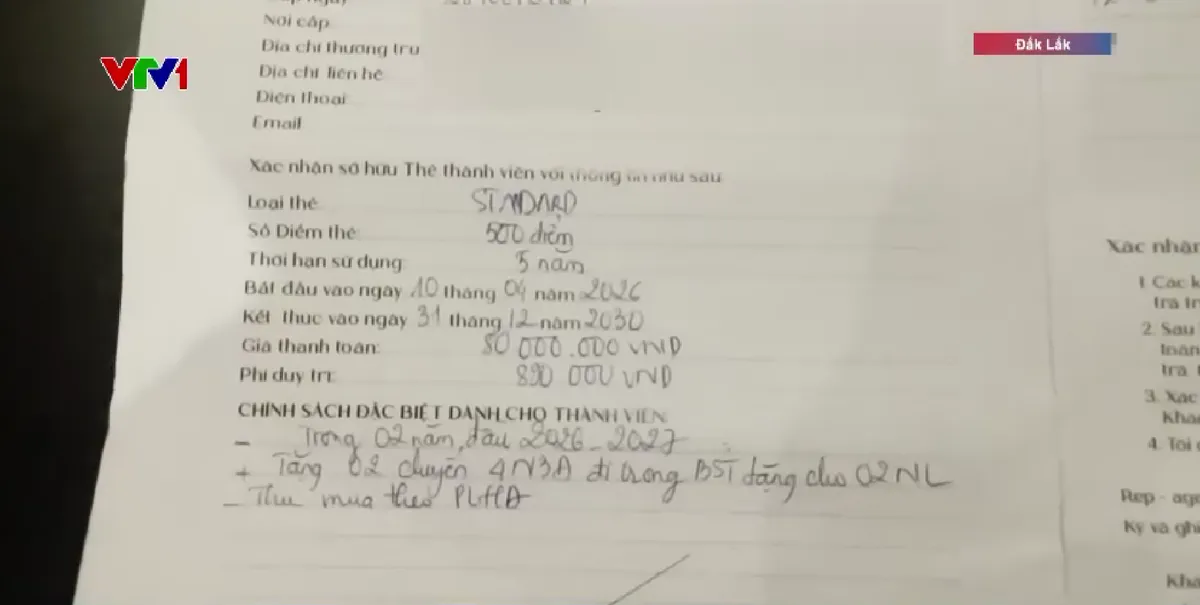 VTV1
Đắk Lắk
Nơi cấp
Địa chỉ thường trú
Địa chỉ liên hệ
Điện thoại:
Email
Xác nhận sở hữu Thẻ thành viên với thông tin như sau:
Loại thẻ: STANDARD
Số Điểm thẻ: 500 điểm
Thời hạn sử dụng: 5 năm
Bắt đầu vào ngày 10 tháng 04 năm 2026
Kết thúc vào ngày 31 tháng 12 năm 2030
Giá thanh toán: 80 000.000 VNĐ
Phí duy trì: 890 000 VNĐ
CHÍNH SÁCH ĐẶC BIỆT DÀNH CHO THÀNH VIÊN:
- Trong 02 năm đầu 2026-2027
+ Tặng 02 chuyến 4N3Đ đi trong BST tặng cho 02 NL
- Thu mua theo PLHĐ
Xác nhận
1. Các k
tra tr
2. Sau
toán
tra,
3. Xác
Khá
4. Tôi
Rep - age
Ký và ghi
Khá